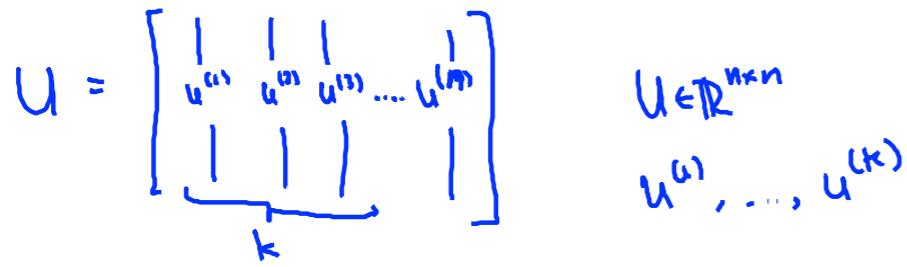 U = [ u^(1) u^(2) u^(3) .... u^(m) ] U ∈ ℝ^{n×n}
u^(1), ..., u^(k)
k